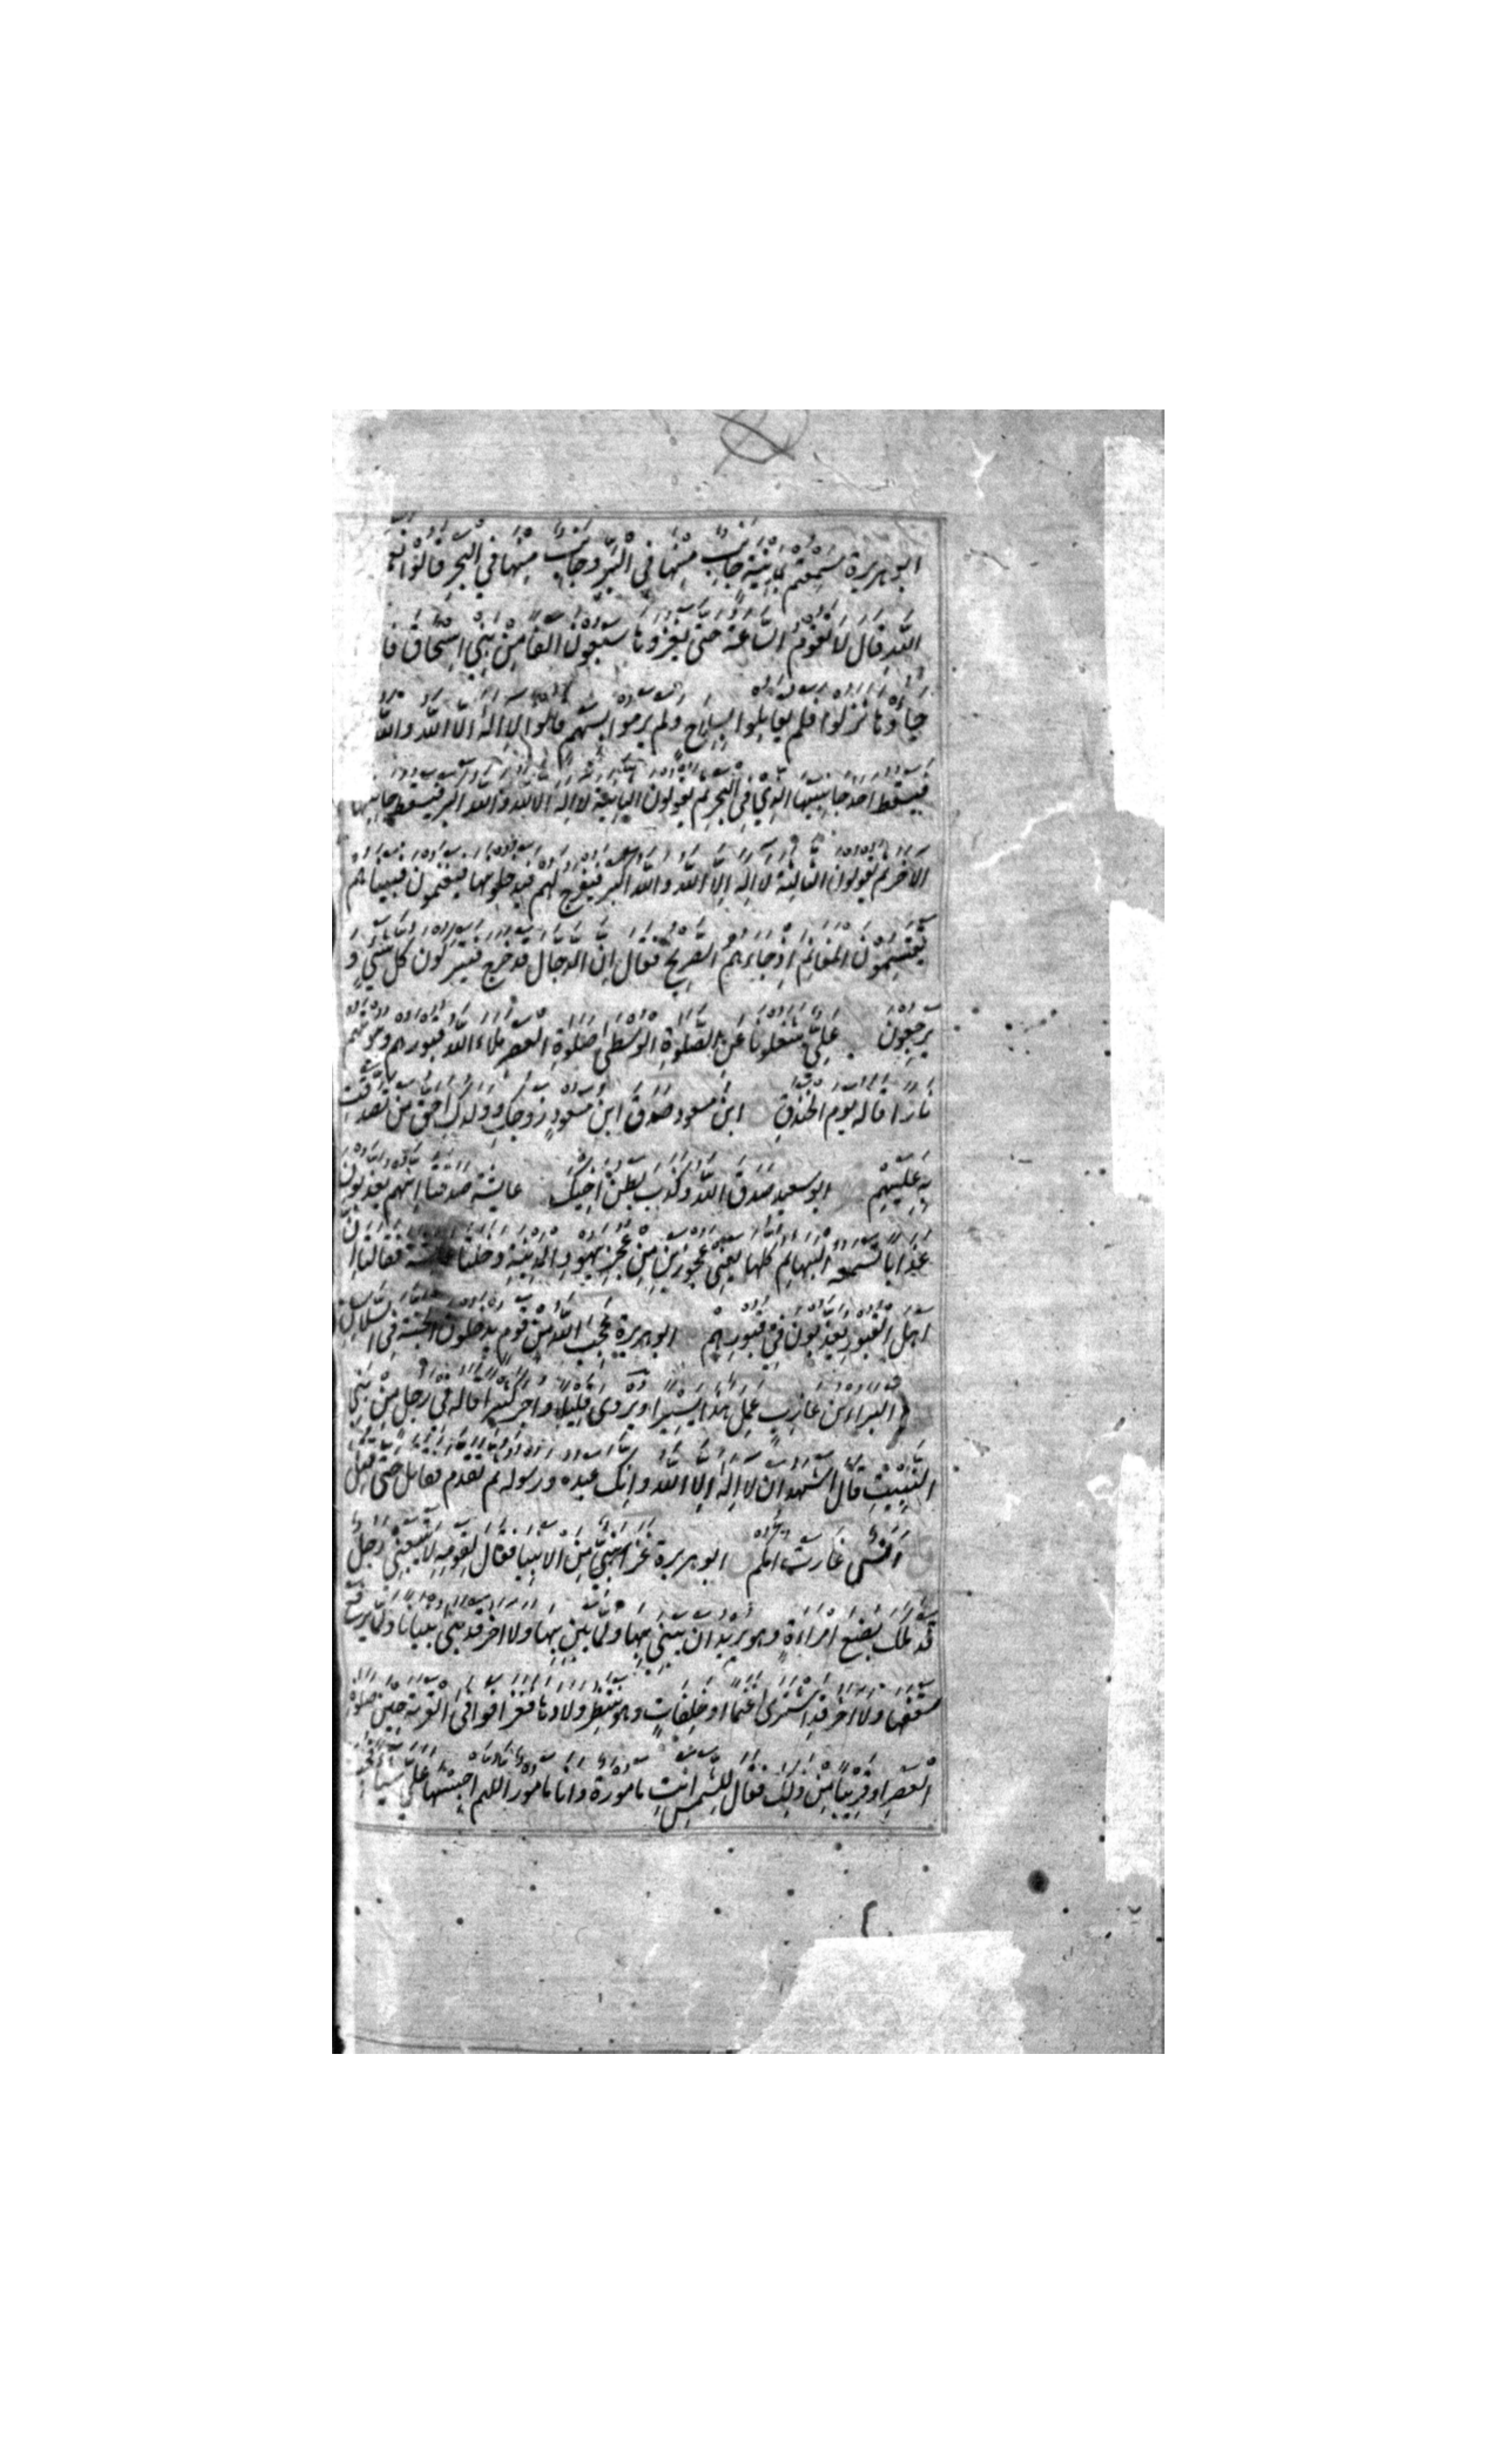 ابو هريرة سَمِعتم بمدينة جانِب مِنها في البَر وجانب مِنها في البَحرِ قالوا نعم
الله قال لا تقوم السّاعة حتى يغزوها سبعون الفا مِن بَنِي اسحاق فا
جاؤها نزلوا فلم يقاتِلوا بسِلاح ولم يرموا بسَهم قالوا لا اِلهَ الا الله والله
فيسقط احد جانبيها الذي في البحر ثم يقولون الثانية لا اله الا الله والله اكبر فيسقط جانبها
الاخر ثم يقولون الثالثة لا اله اِلا الله والله اكبر فيفرج لهم فيدخلونها فيغنمون فبيناهم
يقتسِمون المغانِم اذ جاءهم الصريخ فقال اِن الدجال قد خرج فيتركون كل شيءٍ و
يرجعون علِيّ شغلونا عَنِ الصّلوة الوسطى صلوة العصرِ ملاء الله قبورهم وبيوتهم
نارا قاله يوم الخندقِ ابن مسعود صَدَقَ ابن مَسعودٍ زوجكِ وولدكِ احق من تصدقت
بِه عليهِم ابو سعيد صَدَقَ الله وكَذَبَ بطن اخيكَ عايشة صدقتا انهم يعذبون
عذابا تسمعه البهايم كلها يعني عجوزين مِن عُجُزِ يهود المدينةِ دخلتا على عايشة فقالتا ان
اهل القبور يعذبون في قبورِهم ابو هريرة عجِبَ الله مِن قوم يدخلون الجنة في السلاسل
البراء بن عازِب عمِل هذا يسيرا ويروى قليلا واجر كثيرا قاله في رجل مِن بَنِي
النّبِيتِ قال اشهد ان لا اله اِلا الله وانك عبده ورسوله ثم تقدم فقاتل حتى قتل
انس غارت امكم ابو هريرة غزا نبيّ مِنَ الانبيا فقال لِقومِه لا يتبعنِي رجل
قد ملك بضع امراءةٍ وهو يريد ان يبنِي بِها ولما يبنِ بِها ولا اخر قد بنى بنيانا ولما يرفع
سقفها ولا اخر قد اشترى غنما او خَلِفاتٍ وهو منتظِر ولادها فغزا فوافى القرية حين صلوة
العصر او قريبا مِن ذلك فقال لِلشّمسِ انتِ مامورة وانا مامور اللهم احبسها عليّ شيئا